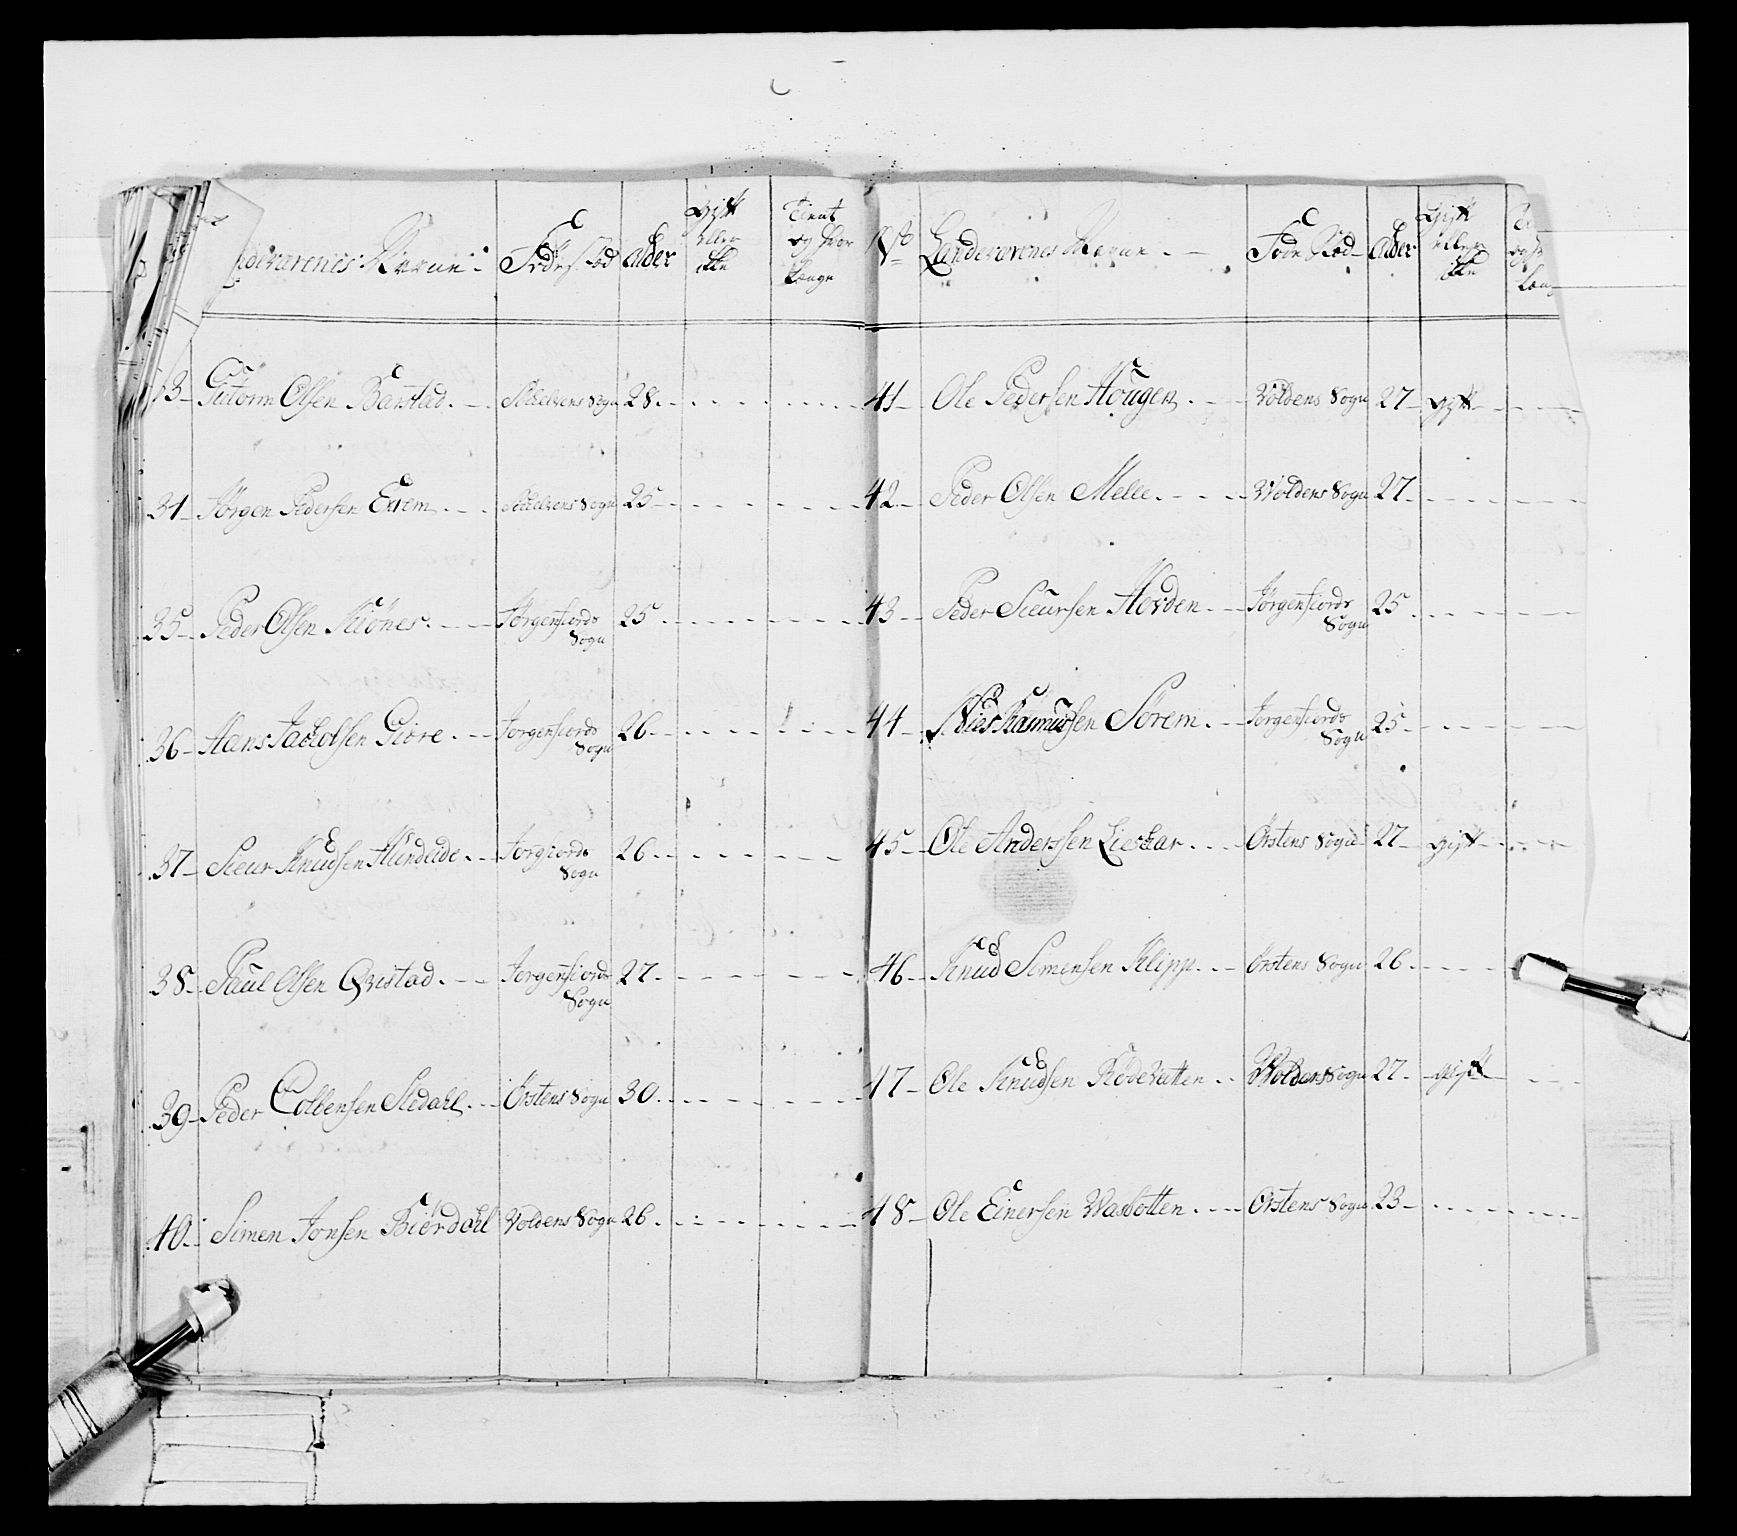 Landeværnes Navne Føde Stæd Alder Gift eller ikke Tient og hvor længe
33 Gutorm Olsen Barstad Schelvens Sogn 28
34 Jørgen Pedersen Exrem Schelvens Sogn 25
35 Peder Olsen Skiönes Jørgensfiords Sogn 25
36 Hans Jacobsen Giøre Jørgensfiords Sogn 26
37 Sieur Knudsen Mendeide Jørgfiords Sogn 26
38 Paul Olsen Qvistad Jørgensfiords Sogn 27
39 Peder Colbensen Sledahl Ørstens Sogn 30
40 Simen Jonsen Biørdahl Voldens Sogn 26
No Landeværnes Navne Føde Stæd Alder Gift eller ikke
41 Ole Pedersen Hougen Voldens Sogn 27 gift
42 Peder Olsen Melle Woldens Sogn 27
43 Peder Sieursen Hovden Jørgensfiords Sogn 25
44 Niels Rasmussen Sørem Jørgensfiords Sogn 25
45 Ole Anderssen Lieskar Ørstens Sogn 27 gift
46 Knud Simensen Klipp Ørstens Sogn 26
47 Ole Knudsen Rødevatten Woldens Sogn 27 gift
48 Ole Einersen Wasbotten Ørstens Sogn 23